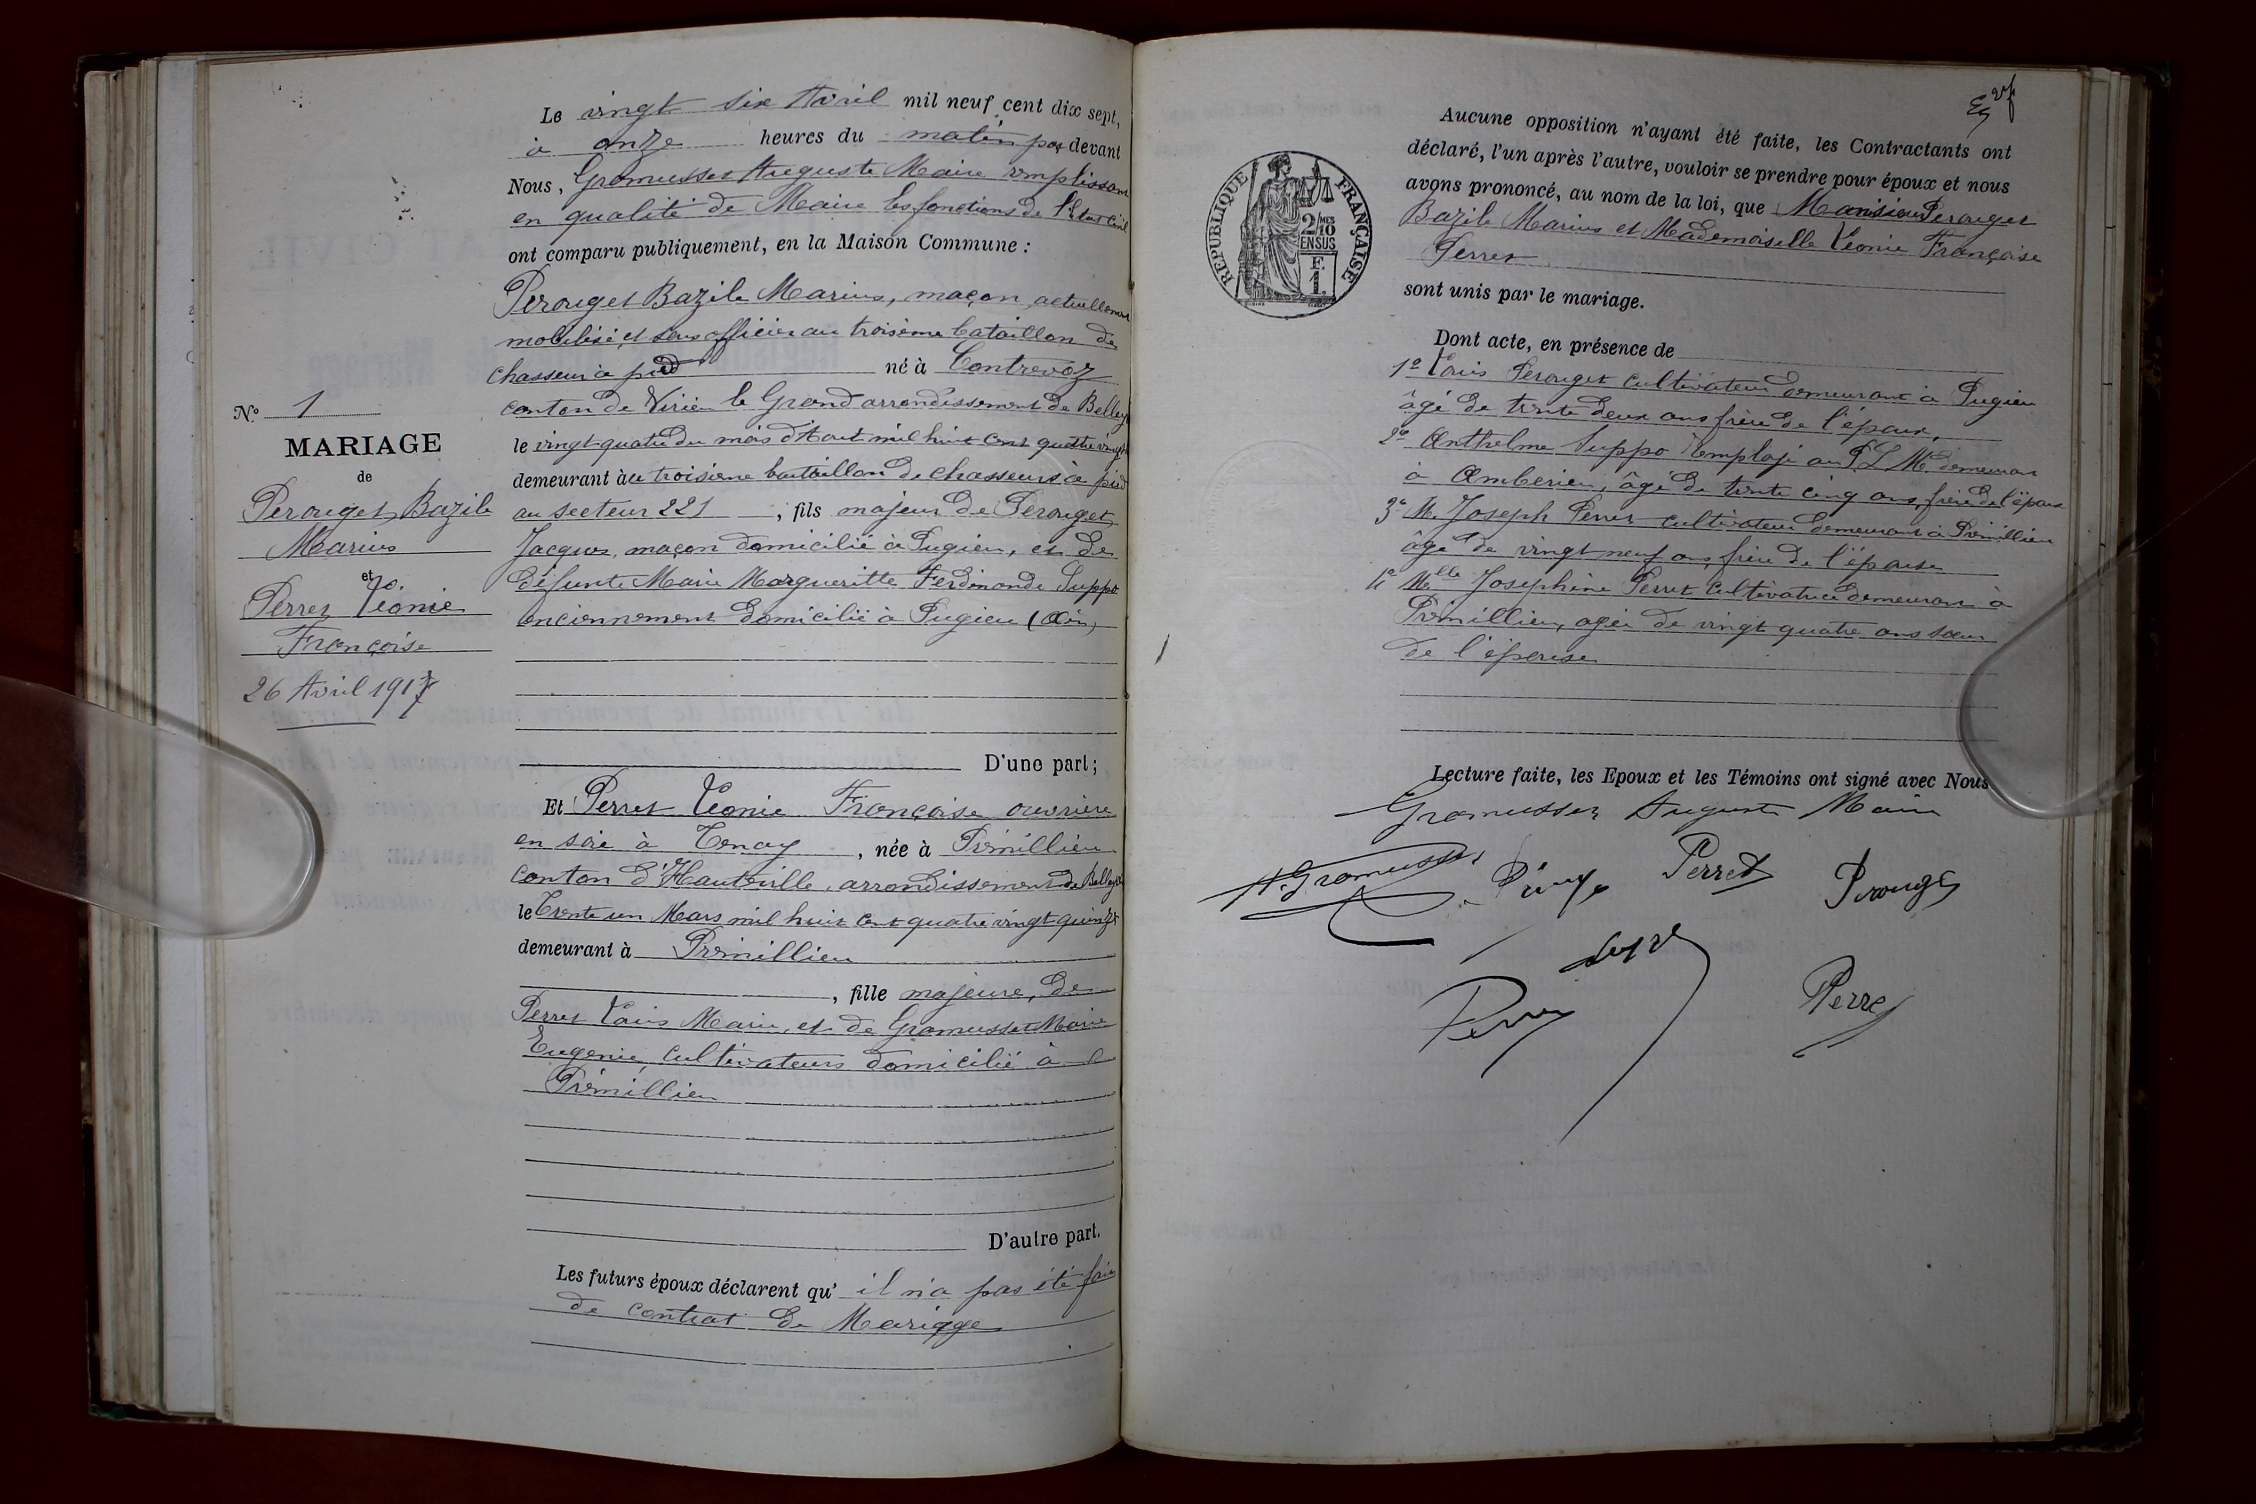 Le vingt six Avril mil neuf cent dix sept,
à onze heures du matin par devant
Nous, Gromusset Auguste Maire remplissant
en qualité de Maire les fonctions de l'Etat Civil
ont comparu publiquement, en la Maison Commune :
Perouget Bazile Marius, maçon actuellement
mobilisé et sous officier au troisème bataillon de
chasseur à pied né à Contrevoz
canton de Virieu le Grand arrondissement de Belley
le vingt quatre du mois d'Aout mil huit cent quatre vingt
demeurant au troisième bataillon de chasseurs à pied
au secteur 221, fils majeur de Perouget
Jacques, maçon domicilié à Pugieu, et de
défunte Marie Margueritte Ferdinande Suppo
anciennement domicilié à Pugieu (Ain)
D'une part;
Nº 1
MARIAGE
de
Perouget Bazile
Marius
et
Perret Léonie
Françoise
26 Avril 1917
Et Perret Léonie Françoise ouvrière
en soie à Tenay, née à Prémillieu
canton d'Hauteville, arrondissement de Belley
le Trente un Mars mil huit cent quatre vingt quinze
demeurant à Prémillieu
, fille majeure, de
Perret Louis Marie, et de Gromusset Marie
Eugenie, cultivateurs domicilié à
Prémillieu
D'autre part.
Les futurs époux déclarent qu'il n'a pas été fait
de contrat de Mariage
Aucune opposition n'ayant été faite, les Contractants ont
déclaré, l'un après l'autre, vouloir se prendre pour époux et nous
avons prononcé, au nom de la loi, que Monsieur Perouget
Bazile Marius et Mademoiselle Léonie Françoise
Perret
sont unis par le mariage.
RÉPUBLIQUE FRANÇAISE
2/10 MES
EN SUS
F.
1.
Dont acte, en présence de
1º Louis Perouget cultivateur demeurant à Pugieu
âgé de trente deux ans frère de l'époux,
2º Anthelme Suppo employé au P L M demeurant
à Amberieu, âgé de trente cinq ans, frère de l'époux
3º M. Joseph Perret cultivateur demeurant à Prémillieu
âgé de vingt neuf ans, frère de l'épouse
4º Mlle Joséphine Perret cultivatrice demeurant à
Prémillieu, agée de vingt quatre ans sœur
de l'épouse
Lecture faite, les Epoux et les Témoins ont signé avec Nous
Gromusset Auguste Maire
A. Gromusset Perret Perouget
Perret